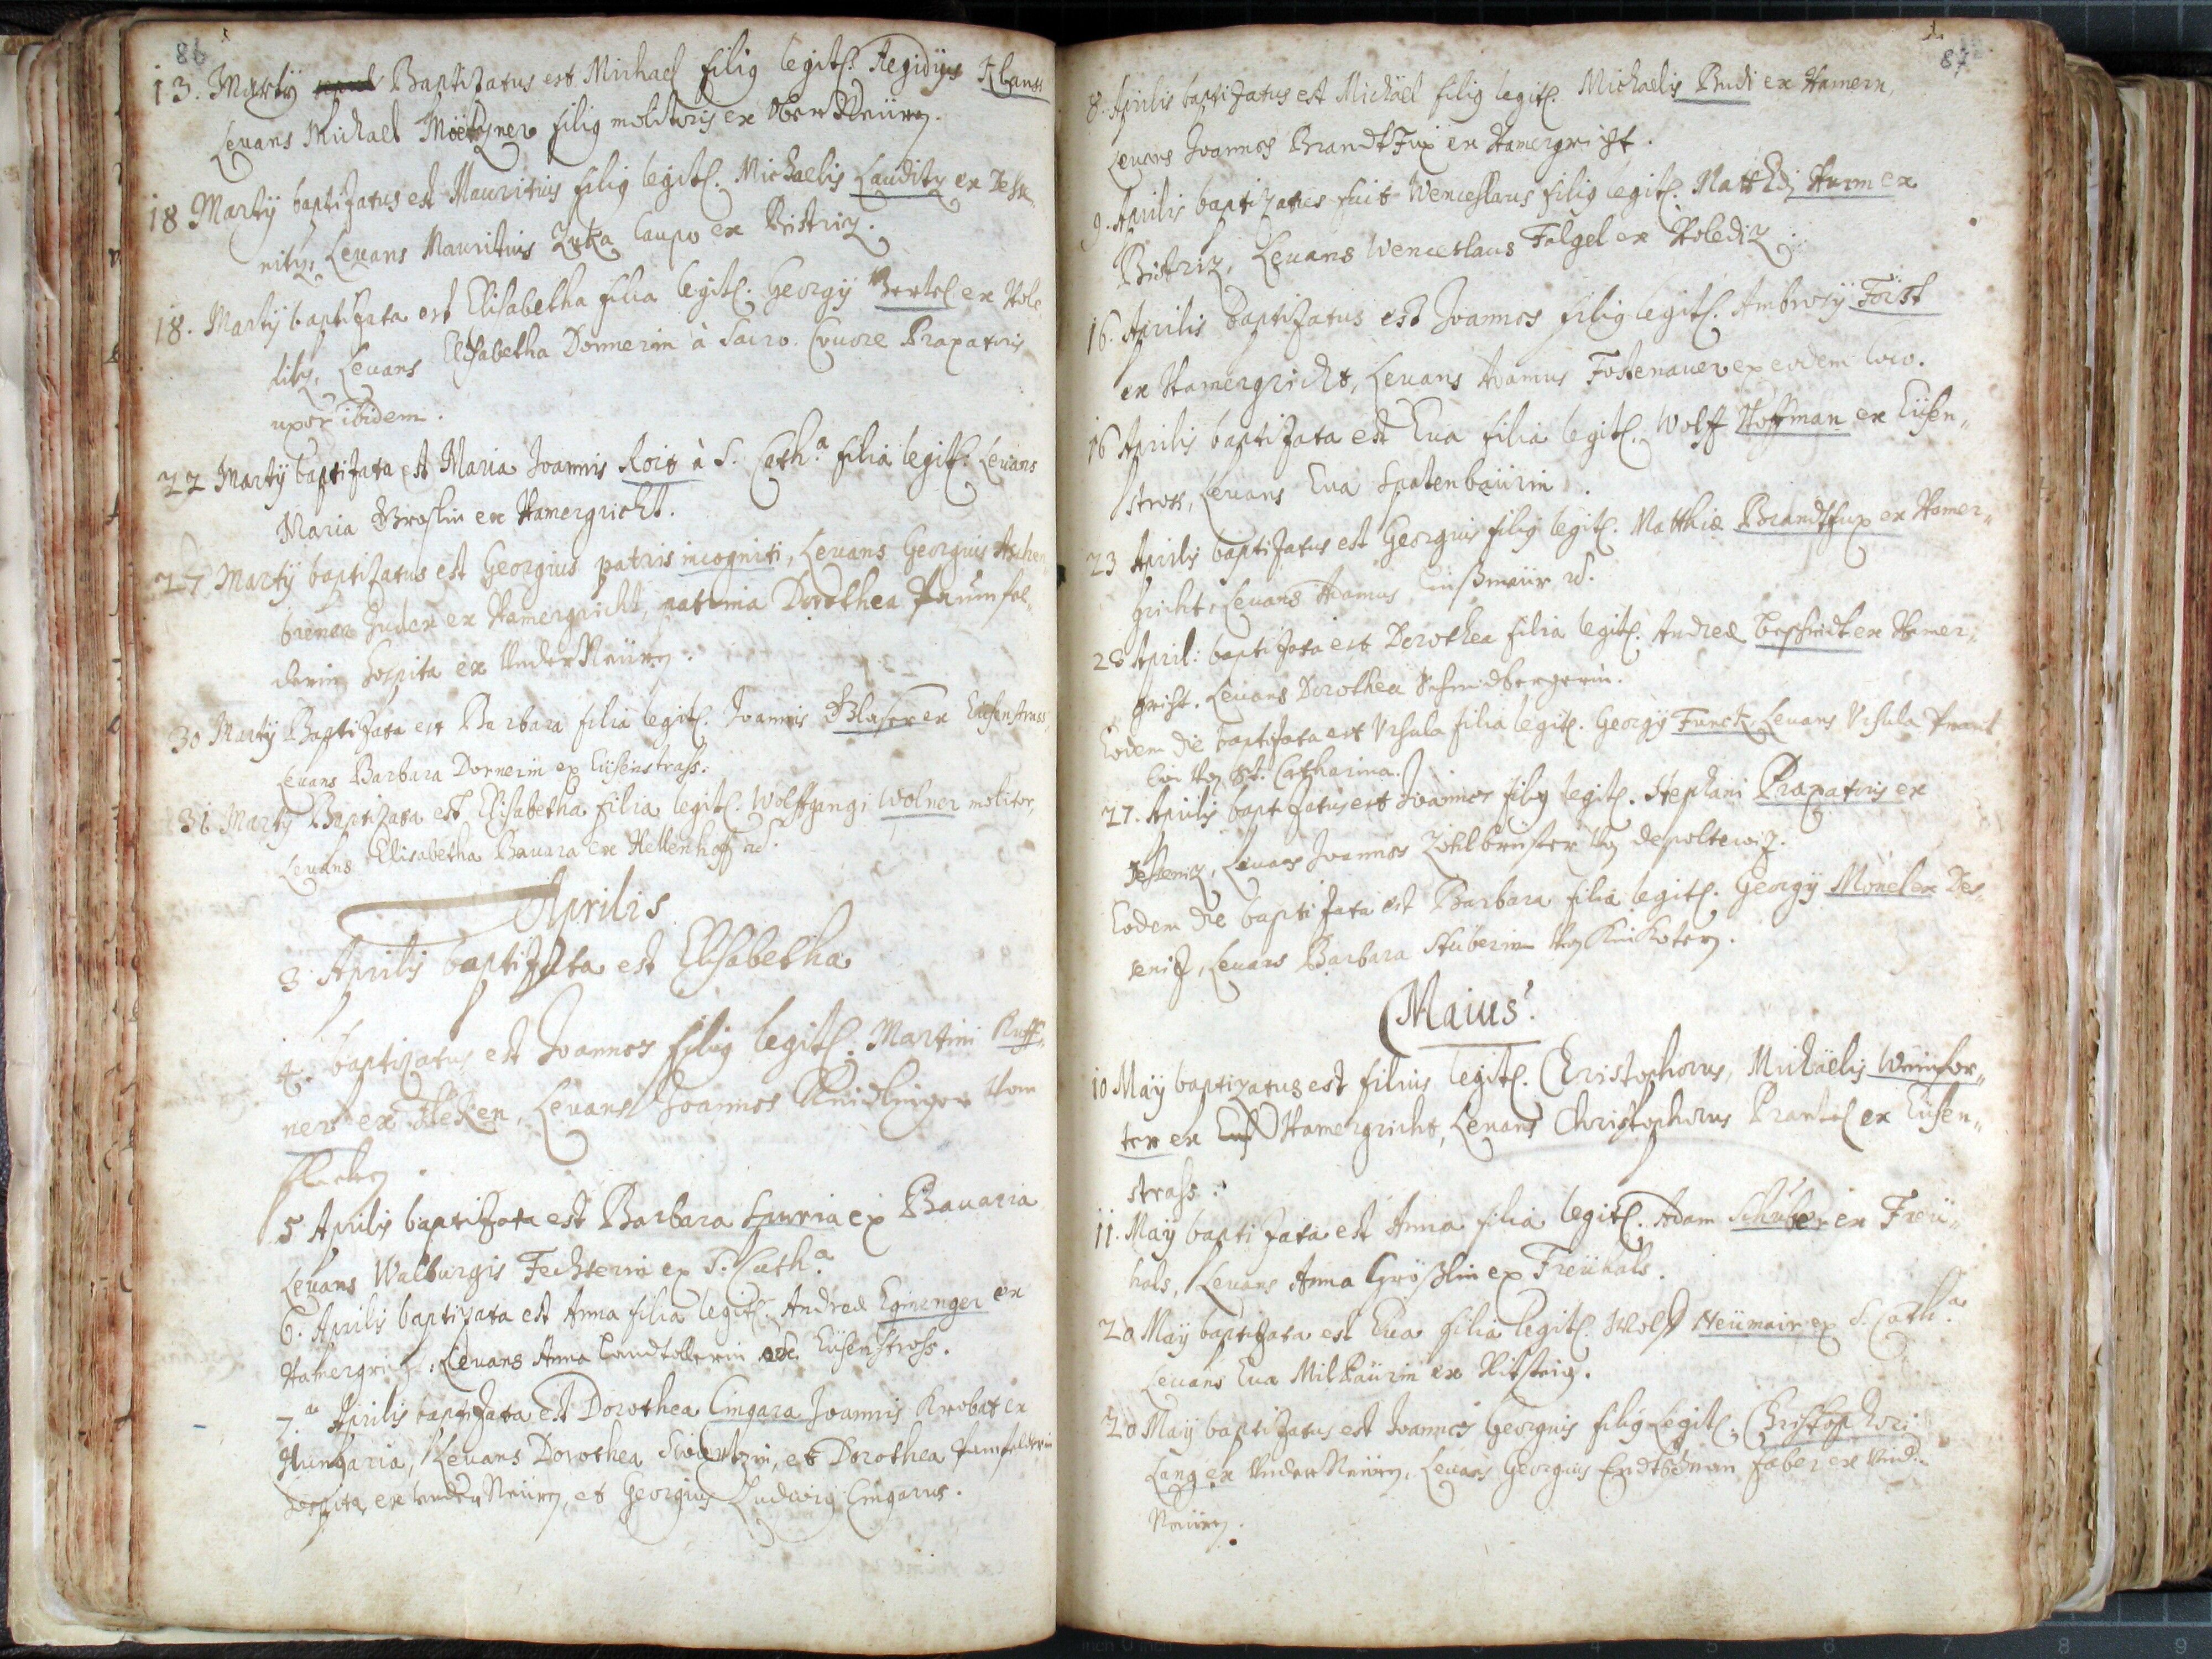 86
13. Martÿ Baptizatus est Michael filig legitẽ Aegidÿus
Levans Michael filig molitoris ex Ober Neürn.
18 Martÿ baptizatus est Mauritius filig legitẽ. Michaelis Laudity ex Jesse-
nitz, Levans Mauritius Zuka caupo ex Bistriz.
18. Martÿ baptizata est Elisabetha filia legitẽ. Georgÿ Bertel ex Hole
ditz, Levans Elisabetha Donnerin à Sacro. Cruore Praxatoris
uxor ibidem.
22 Martÿ baptizata est Maria Joannis Roit à S. Cath.a filia legitẽ. Levans
Maria ex Hamergricht.
27 Martÿ baptizatus est Georgius patris incogniti, Levans Georgius Aschen
brener Juden ex Hamergricht, patrina Dorothea Paumfel-
derin hospita ex Under Neürn.
30 Martÿ Baptizata est Barbara filia legitẽ. Joannis Blaser ex Eisenstrass,
Levans Barbara Dornerin ex Eüsenstrass.
31 Martÿ Baptizata est Elisabetha filia legitẽ. Wolffgangi Wolner molitor,
Levans Elisabetha Bavara ex Hellenhoff
Aprilis
3 Aprilis baptizata est Elisabetha
4. baptizatus est Joannes filig legitẽ. Martini Ruff-
ner ex Fleken, Levans Joannes Vom
flecken.
5 Aprilis baptizata est Barbara Spuria ex Bavaria
Levans Walburgis Fechterin ex S. Cath.a
6. Aprilis baptizata est Anna filia legitẽ. Andreæ Egmenger ex
Hamergricht: Levans Anna Landtollerin Eüsenstross.
7.a Aprilis baptizata est Dorothea Cingara Joannis Krobat ex
Hungaria, Levans Dorothea et Dorothea Paumfelderin
hospita ex under Neürn, et Georgius Ludwig Cingarus.
87
8. Aprilis baptizatus est Michäel filig legitẽ. Michaelis Pudi ex Hamern,
Levans Joannes BrandtFux ex Hamergricht.
9. Aprilis baptizatus fuit Wenceslaus filig legitẽ. Matthæi Sturm ex
Bistriz, Levans Wenceslaus Falgel ex Holediz.
16. Aprilis baptizatus est Joannes filig legitẽ. Ambrosÿ Foist
ex Hamergricht, Levans Adamus Fostenauer ex eodem loco.
16 Aprilis baptizata est Eua filia legitẽ. Wolff Hoffman ex Eisen-
stross, Levans Eua Spatenbaürin.
23 Aprilis baptizatus est Georgius filig legitẽ. Matthiæ Brandtfux ex Hamer-
gricht, Levans Adamus
28 April: baptizata est Dorothea filia legitẽ. Andreæ ex Hamer-
gricht. Levans Dorothea Schmidbergerin.
Eodem die baptizata est Vrsula filia legitẽ. Georgÿ Funck, Levans Vrsula Prant
lin Von St. Catharina.
27. Aprilis baptizatus est Joannes filig legitẽ. Stephani Praxatoris ex
Jessenitz, Levans Joannes Von depoltewiz.
Eodem die baptizata est Barbara filia legitẽ. Georgÿ Mönel ex Des-
seniz, Levans Barbara Stuberin Von
Maius.
10 Maÿ baptizatus est filius legitẽ. Christophorus, Michäelis Weinfor-
ter ex Hamergricht, Levans Christophorus Prantel ex Eüsen-
strass.
11. Maÿ baptizata est Anna filia legitẽ. Adam Schuber ex Freü-
hals, Levans Anna Größlin ex Freühals.
20 Maÿ baptizata est Eua filia legitẽ. Wolff Neümair ex S. Cath.a
Levans Eua Milpaürin ex Hitstein.
20 Maÿ baptizatus est Joannes Georgius filig legitẽ. Christophori
Lang ex Under Neürn, Levans Georgius faber ex Und.
Neürn.